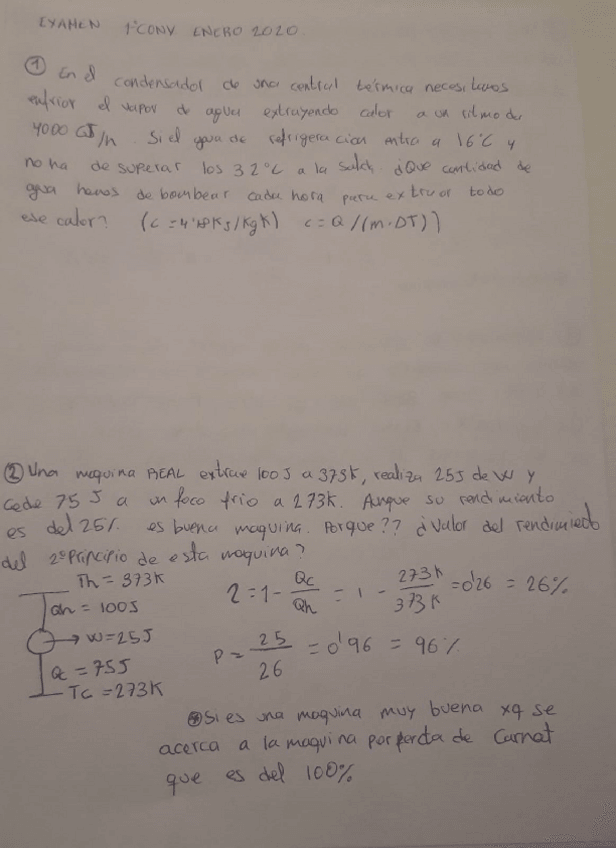 EXAMEN 1ªCONV ENERO 2020
① En el condensador de una central térmica necesitamos
enfriar el vapor de agua extrayendo calor a un ritmo de
4000 GJ/h. Si el gua de refrigeracion entra a 16ºC y
no ha de superar los 32ºC a la salida. ¿Que cantidad de
gua hemos de bombear cada hora para extraer todo
ese calor? (c = 4'18KJ/KgK) c = Q/(m·DT))
② Una maquina REAL extrae 100J a 373K, realiza 25J de W y
cede 75 J a un foco frio a 273K. Aunque su rendimiento
es del 25% es buena maquina. Porque?? ¿Valor del rendimiento
del 2º principio de esta maquina?
Th = 373K
Qh = 100J
W=25J
Qc = 75J
Tc = 273K
2 = 1 - Qc/Qh = 1 - 273K/373K = 0'26 = 26%
P = 25/26 = 0'96 = 96%
Si es una maquina muy buena xq se
acerca a la maquina porfecta de Carnot
que es del 100%